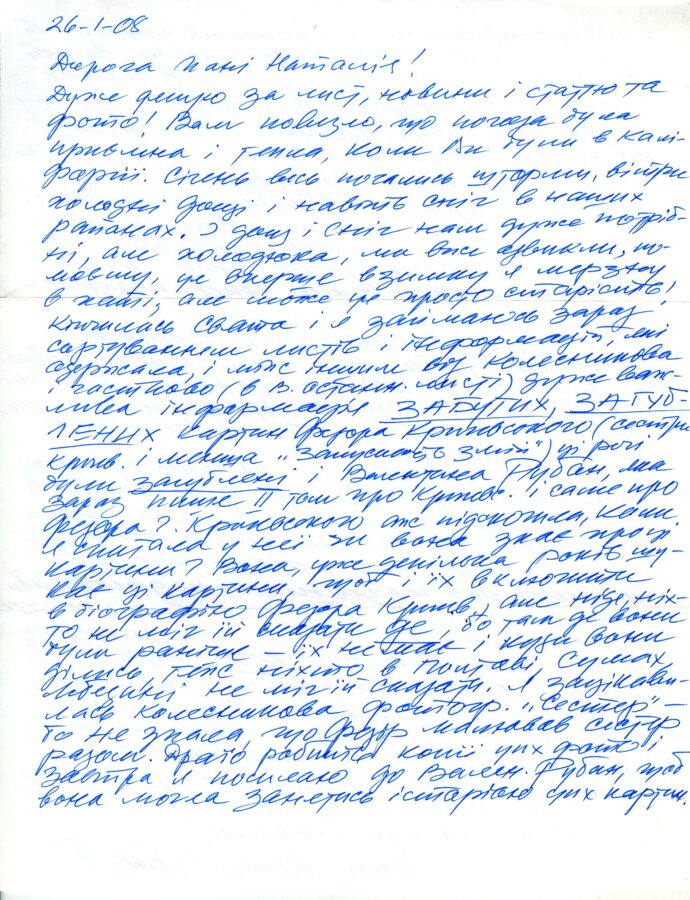 26-1-08
Дорога пані Наталія!
Дуже дякую за лист, новини і статтю та
фото! Вам повезло, що погода була
приємна і тепла, коли Ви були в Калі-
форнії. Січень весь почались шторми, вітри
холодні дощі і навіть сніг в наших
районах. І дощ і сніг нам дуже потріб-
ні, але холоднюка, ми вже одвикли, по-
моєму, це вперше взимку я мерзну
в хаті, але може це просто старість!
Кінчились Свята і я займаюсь зараз
сортуванням листів і інформацій, які
одержала, і між іншим від Колесникова
і частково (в В. останн. листі) дуже важ-
лива інформація ЗАБУТИХ, ЗАГУБ-
ЛЕНИХ картин Федора Кричевського (сестри
Кричев. і менша „Запускають змій") ці речі
були загублені і Валентина Рубан, яка
зараз пише II том про Кричев. і саме про
Федора Кричевського аж підскочила, коли
я спитала у неї чи вона знає про ці
картини? Вона, уже декілька років шу-
кає ці картини, щоб і їх включити
в біографію Федора Кричев, але ніде, ніх-
то не міг їй сказати де, бо там де вони
були раніше – їх немає і куди вони
ділись, теж ніхто в Полтаві, Сумах,
Лебедині не міг їй сказати. Я зацікави-
лась Колесникова фотогр. „Сестер" –
бо не знала, що Федір малював сестер
разом. Драго робить копії цих фото і
завтра я посилаю до Вален. Рубан, щоб
вона могла занятись історією цих картин.